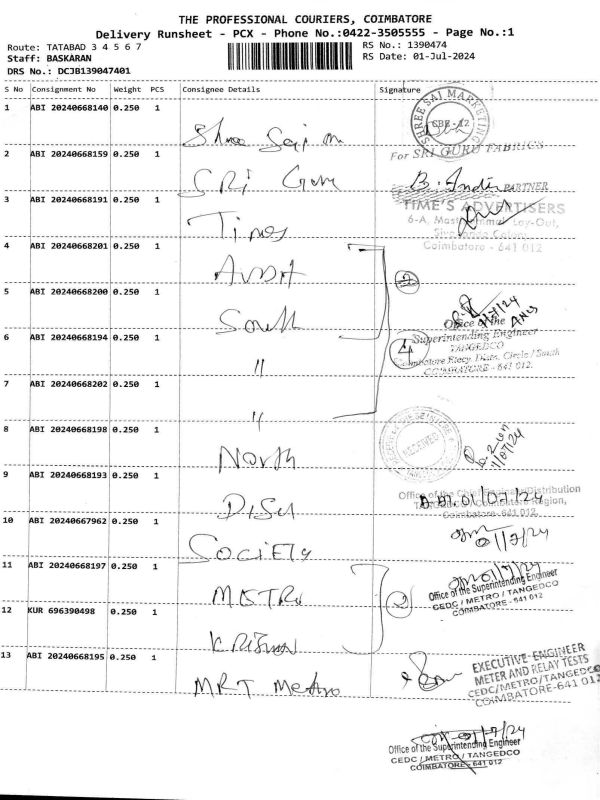 THE PROFESSIONAL COURIERS, COIMBATORE
Delivery Runsheet - PCX - Phone No.:0422-3505555 - Page No.:1
Route: TATABAD 3 4 5 6 7
RS No.: 1390474
Staff: BASKARAN
RS Date: 01-Jul-2024
DRS No.: DCJB139047401
S No Consignment No Weight PCS Consignee Details Signature
1 ABI 20240668140 0.250 1
SHREE SAI MARKETING
CBE-12
Shree Sai m
For SRI GURU FABRICS
2 ABI 20240668159 0.250 1
SRi Guru
PARTNER
3 ABI 20240668191 0.250 1
TIME'S ADVERTISERS
Times
Coimbatore - 641 012
4 ABI 20240668201 0.250 1
5 ABI 20240668200 0.250 1
South
Office of the
6 ABI 20240668194 0.250 1
4
Superintending Engineer
TANGEDCO
Coimbatore Elecy. Distn. Circle / South
COIMBATORE - 641 012.
"
7 ABI 20240668202 0.250 1
"
8 ABI 20240668198 0.250 1
RECEIVED
North
9 ABI 20240668193 0.250 1
01/07/24
10 ABI 20240667962 0.250 1
Society
01/7/24
11 ABI 20240668197 0.250 1
Metro
2
Office of the Superintending Engineer
CEDC / METRO / TANGEDCO
COIMBATORE - 641 012
12 KUR 696390498 0.250 1
13 ABI 20240668195 0.250 1
MRT Metro
EXECUTIVE ENGINEER
METER AND RELAY TESTS
CEDC/METRO/TANGEDCO
COIMBATORE-641 012
Office of the Superintending Engineer
CEDC / METRO / TANGEDCO
COIMBATORE - 641 012